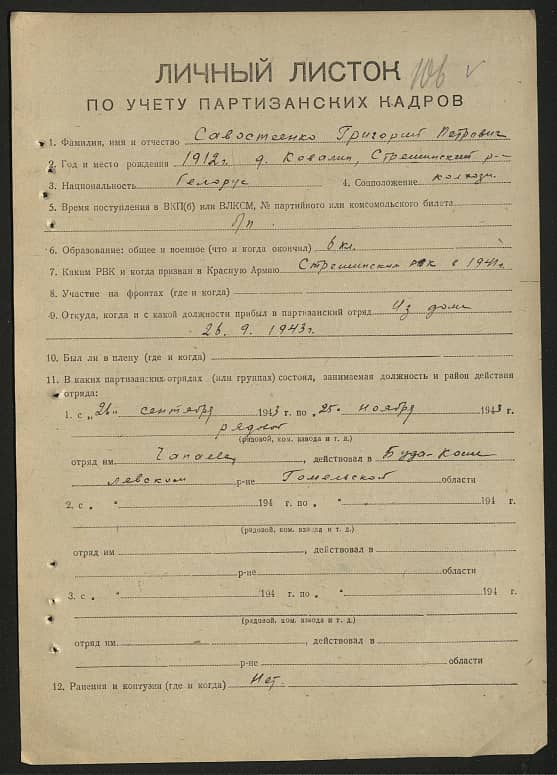 ЛИЧНЫЙ ЛИСТОК 106 ✓
ПО УЧЕТУ ПАРТИЗАНСКИХ КАДРОВ
1. Фамилия, имя и отчество Савостеенко Григорий Петрович
2. Год и место рождения 1912г. д. Ковали, Стрешинский р-
3. Национальность белорус 4. Соцположение колхозн.
5. Время поступления в ВКП(б) или ВЛКСМ, № партийного или комсомольского билета
б/п
6. Образование: общее и военное (что и когда окончил) 6 кл.
7. Каким РВК и когда призван в Красную Армию Стрешинским рвк в 1941г.
8. Участие на фронтах (где и когда)
9. Откуда, когда и с какой должности прибыл в партизанский отряд Из дома
26. 9. 1943г.
10. Был ли в плену (где и когда)
11. В каких партизанских отрядах (или группах) состоял, занимаемая должность и район действия
отряда:
1. с „26" сентября 1943 г. по „25" ноября 1943 г.
рядовой
(рядовой, ком. взвода и т. д.)
отряд им. Чапаева, действовал в Буда-Коше
левском р-не Гомельской области
2. с „ " 194 г. по „ " 194 г.
(рядовой, ком. взвода и т. д.)
отряд им , действовал в
р-не области
3. с „ " 194 г. по „ " 194 г.
(рядовой, ком. взвода и т. д.)
отряд им. , действовал в
р-не области
12. Ранения и контузии (где и когда) Нет.